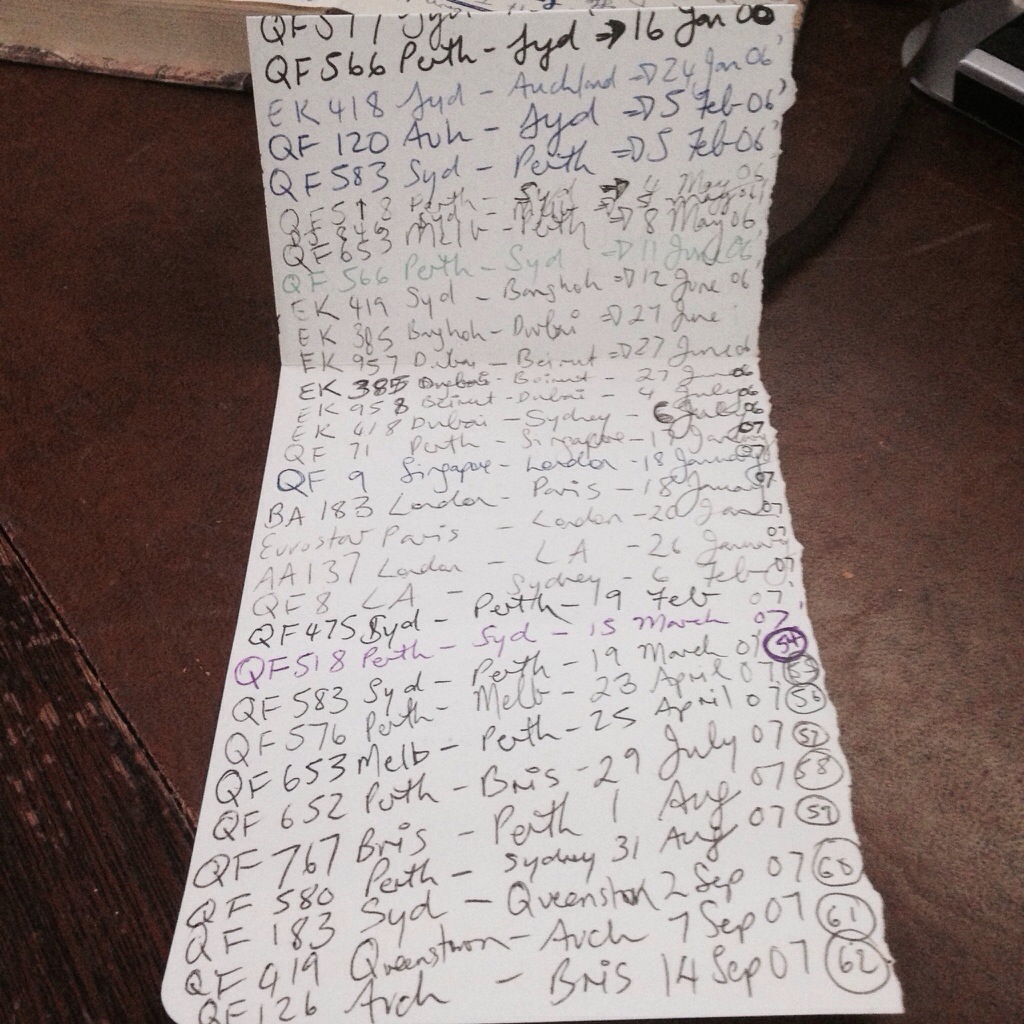 QF 566 Perth - Syd → 16 Jan 06
EK 418 Syd - Auckland ⇒ 24 Jan 06'
QF 120 Auk - Syd ⇒ 5 Feb 06'
QF 583 Syd - Perth ⇒ 5 Feb 06'
Perth - Syd ⇒ 4 May 06
QF 653 Melb - Perth ⇒ 8 May 06
QF 566 Perth - Syd ⇒ 11 June 06'
EK 419 Syd - Bangkok ⇒ 12 June 06
EK 385 Bangkok - Dubai ⇒ 27 June
EK 957 Dubai - Beirut ⇒ 27 June 06
EK 385 Dubai - Beirut - 27 June 06
EK 958 Beirut - Dubai - 4 July 06
EK 418 Dubai - Sydney - 6 July 06
QF 71 Perth - Singapore - 17 January 07
QF 9 Singapore - London - 18 January 07
BA 183 London - Paris - 18 January 07
Eurostar Paris - London - 20 Jan 07
AA 137 London - LA - 26 January 07
QF 8 LA - Sydney - 6 Feb 07
QF 475 Syd - Perth - 19 Feb 07'
QF 518 Perth - Syd - 15 March 07 54
QF 583 Syd - Perth - 19 March 07 55
QF 576 Perth - Melb - 23 April 07 56
QF 653 Melb - Perth - 25 April 07 57
QF 652 Perth - Bris - 29 July 07 58
QF 767 Bris - Perth 1 Aug 07 59
QF 580 Perth - Sydney 31 Aug 07 60
QF 183 Syd - Queenston 2 Sep 07 61
QF 419 Queenstown - Auch 7 Sep 07 62
QF 126 Auch - Bris 14 Sep 07